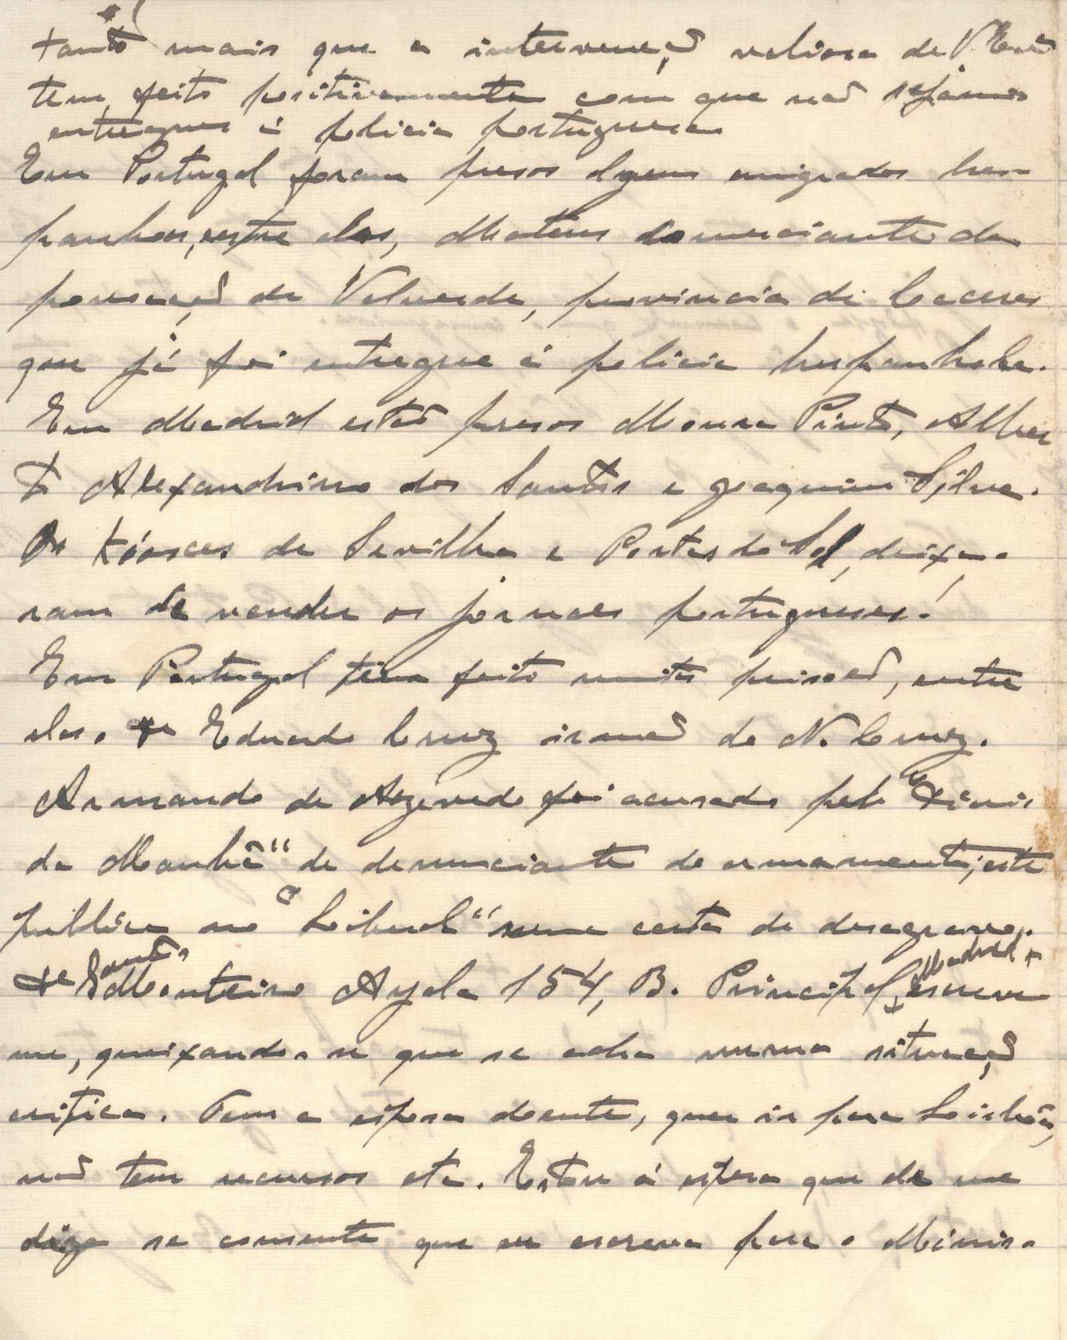 tanto mais que a intervenção valiosa de V. Exª
tem feito positivamente com que não sejamos
entregues á policia portuguesa
Em Portugal foram presos alguns emigrados hes-
panhoes, entre eles, Mateus comerciante da
povoação de Valverde, provincia de Caceres
que já foi entregue á policia hespanhola.
Em Madrid estão presos Moura Pinto, Alber
to Alexandrino dos Santos e Joaquim Silva.
Os kiosces de Sevilha e Portas do Sol, deixa-
ram de vender os jornaes portugueses!
Em Portugal têm feito muitas prisoes, entre
elas. Eduardo Cruz irmão do N. Cruz.
Armando de Azevedo foi acusado pelo "Diario
da Manhã" de denunciante do armamento; este
publica no "Liberal" uma carta de desagravo.
Santos Monteiro Ayala 154, B. Principal, Madrid escreve
me, queixando-se que se acha numa situação
critica. Tem a esposa doente, quer ir para Lisbôa,
não tem recursos etc. Estou á espera que me
diga se consente que eu escreva para o Minis-